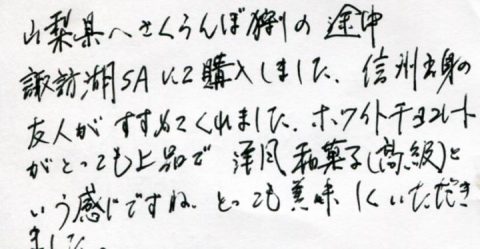 山梨県へさくらんぼ狩りの途中
諏訪湖SAにて購入しました。信州出身の
友人がすすめてくれました。ホワイトチョコレート
がとっても上品で 洋風和菓子(高級)と
いう感じですね。とっても美味しくいただき
ました。